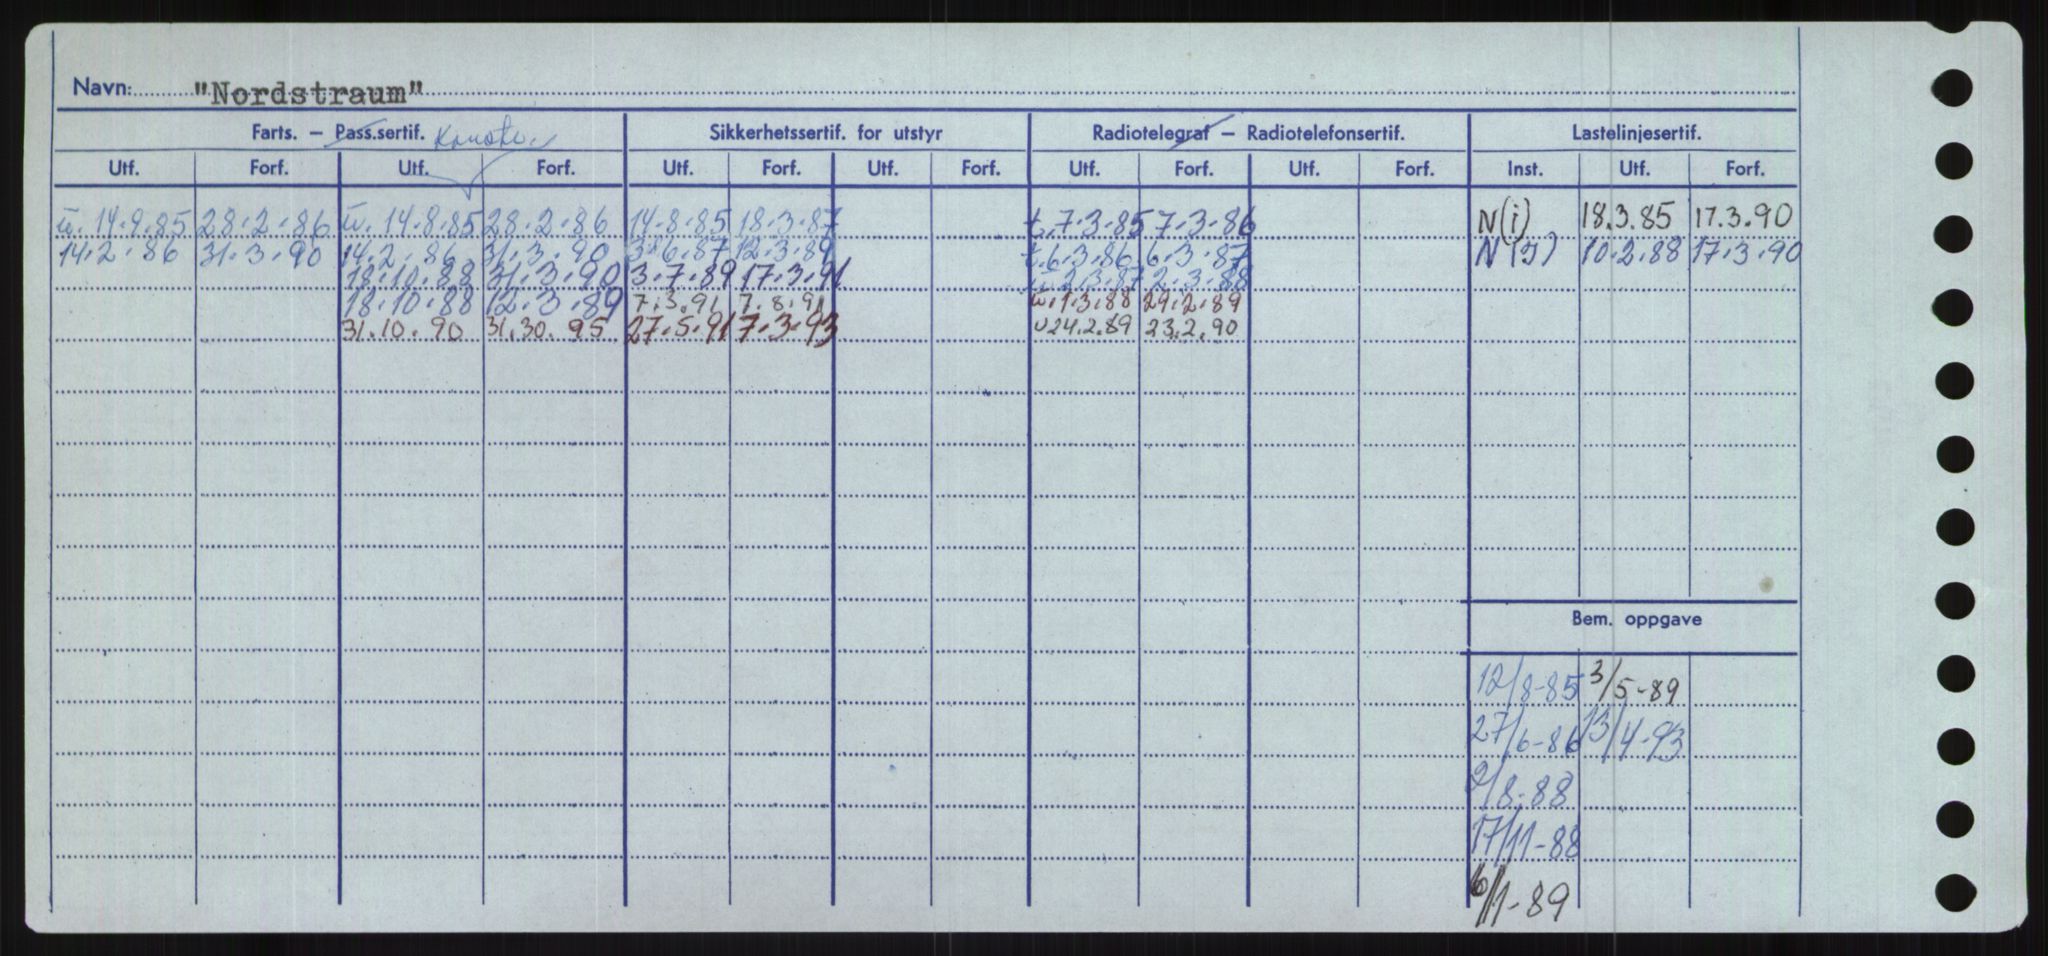 Navn: "Nordstraum"
Farts. – Pass.sertif. Konstr. Sikkerhetssertif. for utstyr Radiotelegraf – Radiotelefonsertif. Lastelinjesertif.
Utf. Forf. Utf. Forf. Utf. Forf. Utf. Forf. Utf. Forf. Utf. Forf. Inst. Utf. Forf.
u. 14.9.85 28.2.86 u. 14.8.85 28.2.86 14.8.85 18.3.87 t. 7.3.85 7.3.86 N(i) 18.3.85 17.3.90
14.2.86 31.3.90 14.2.86 31.3.90 3.6.87 12.3.89 t. 6.3.86 6.3.87 N(I) 10.2.88 17.3.90
18.10.88 31.3.90 3.7.89 17.3.91 u. 2.3.87 2.3.88
18.10.88 12.3.89 7.3.91 7.8.91 u. 1.3.88 29.2.89
31.10.90 31.30.95 27.5.91 7.3.93 u 24.2.89 23.2.90
Bem. oppgave
12/8-85 3/5-89
27/6-86 13/4-93
2/8-88
17/11-88
6/1-89